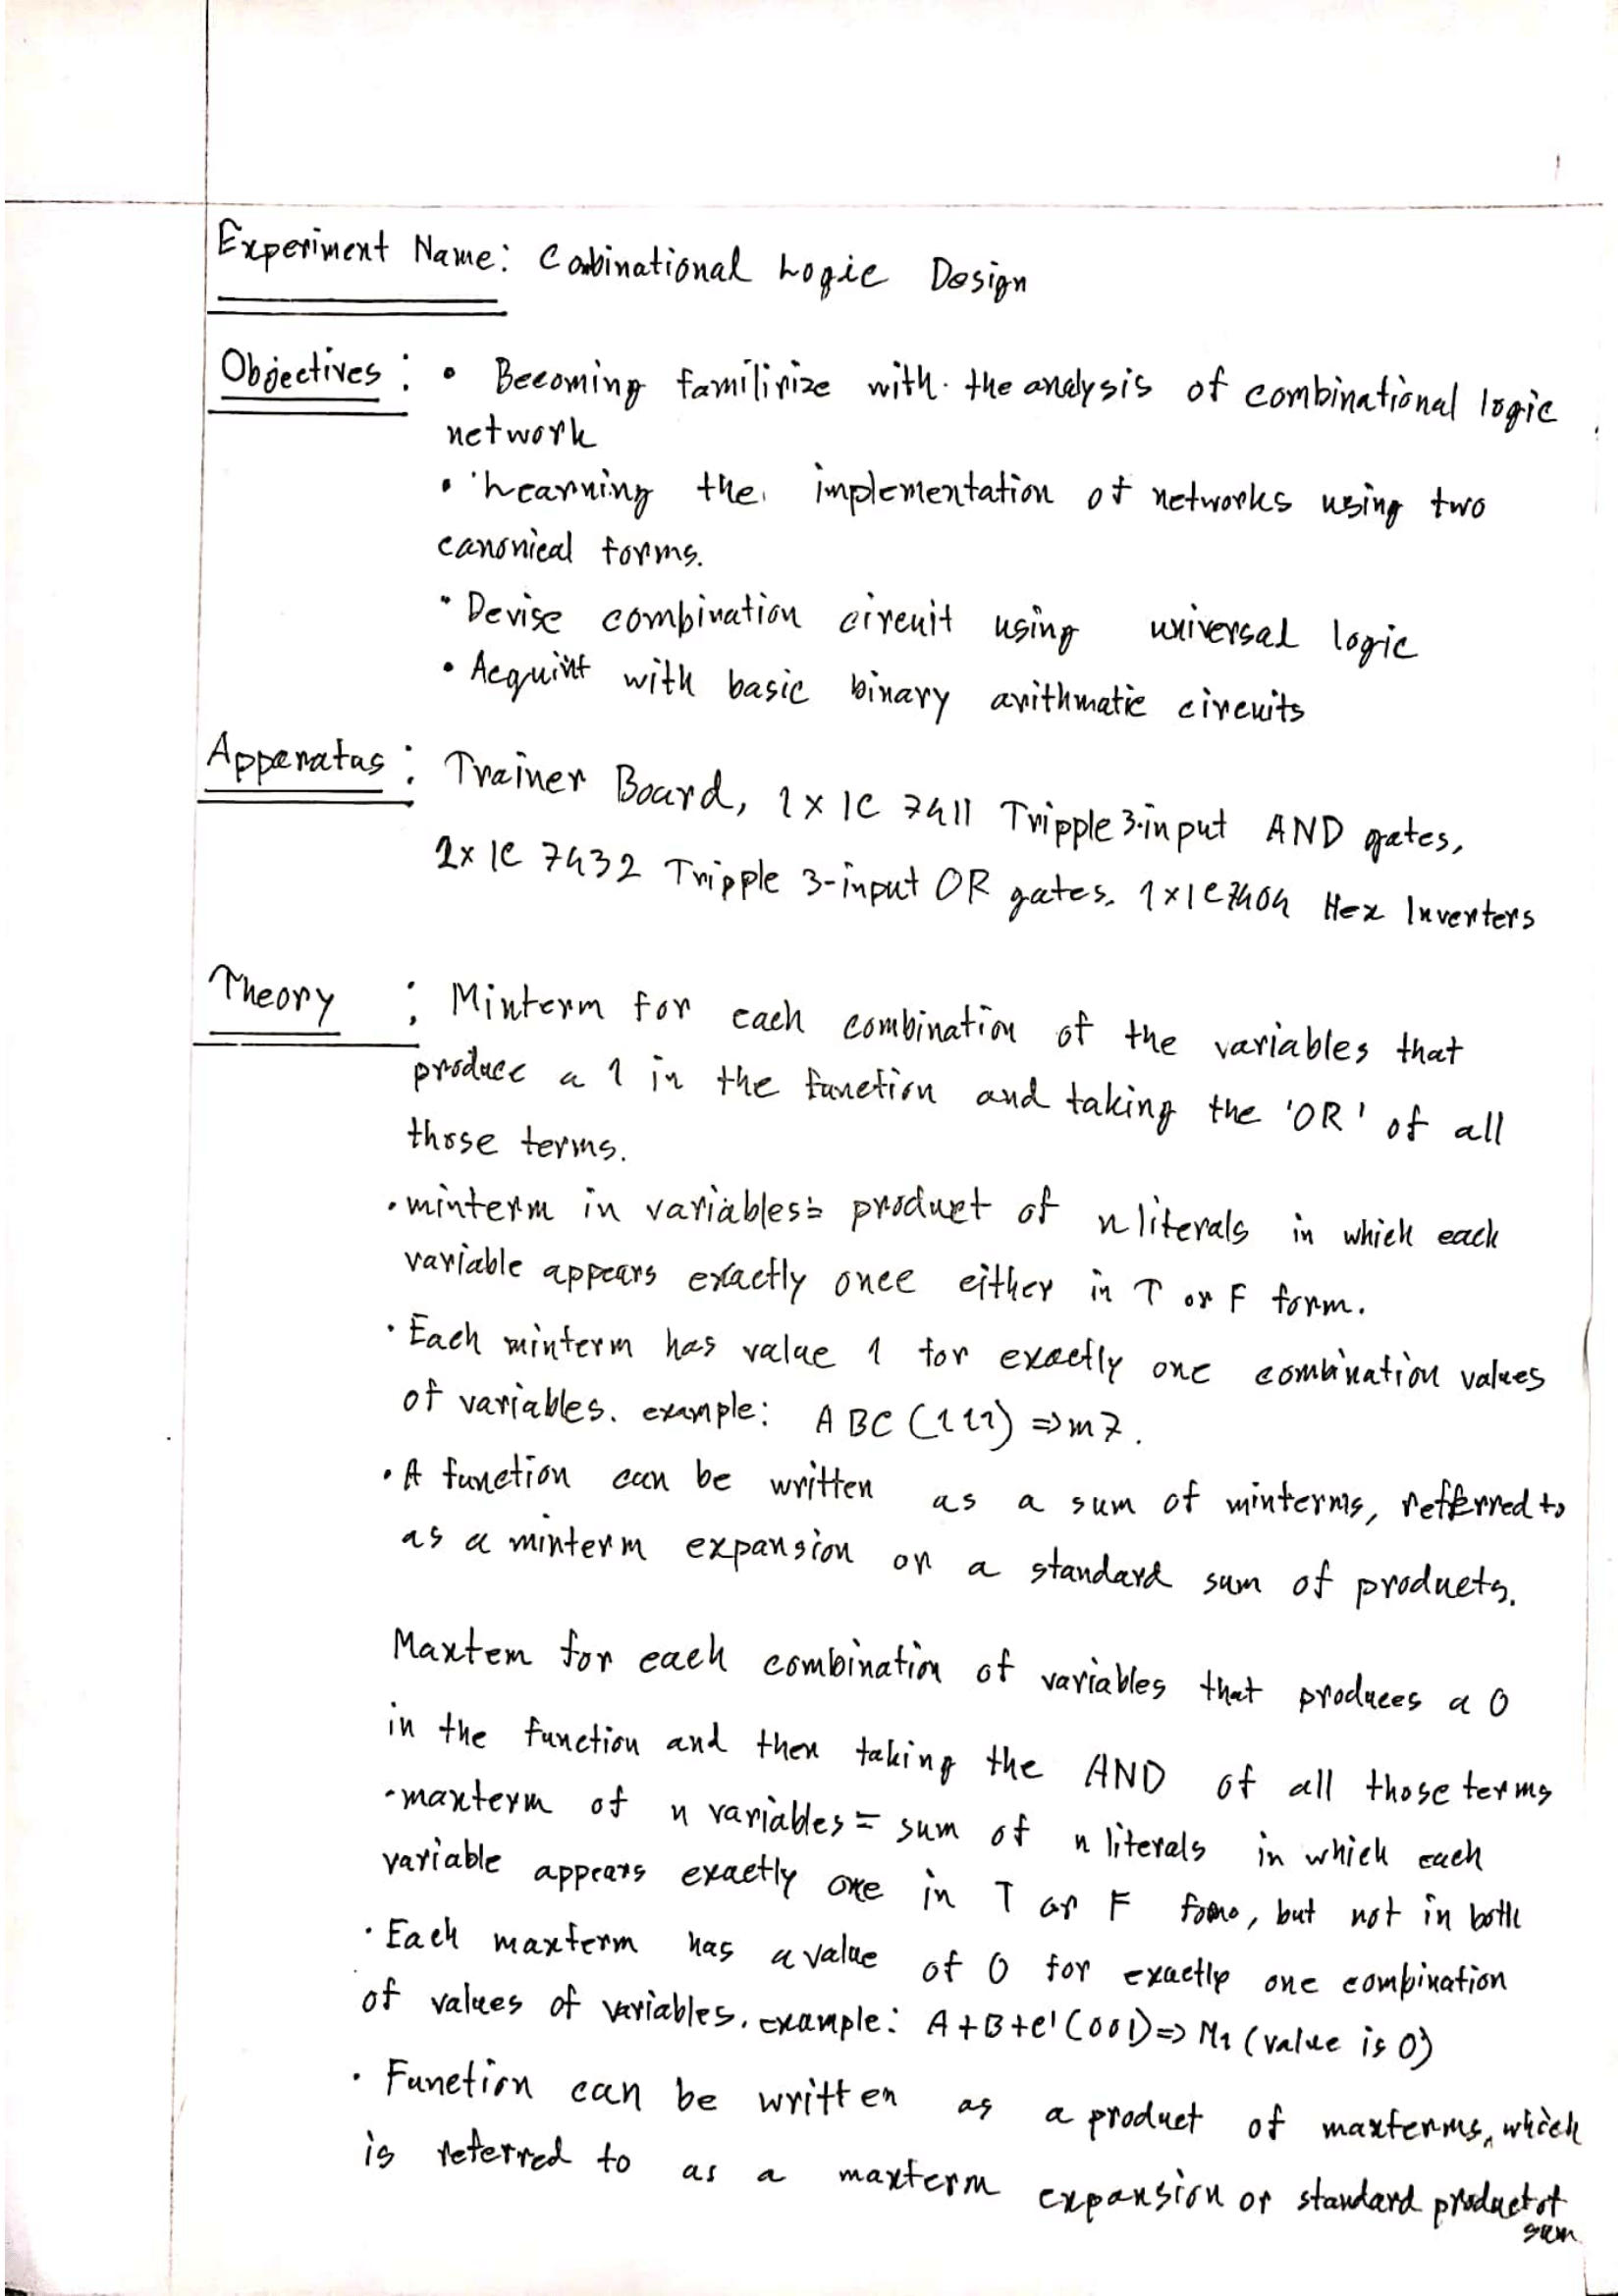 Experiment Name: Cobinational Logic Design
Objectives: • Becoming familirize with the analysis of combinational logic
network
• Learning the implementation of networks using two
canonical forms.
• Devise combination circuit using universal logic
• Acquint with basic binary arithmatic circuits
Apparatus: Trainer Board, 1x IC 7411 Tripple 3-input AND gates,
2x IC 7432 Tripple 3-input OR gates. 1x IC7404 Hex Inverters
Theory : Minterm for each combination of the variables that
produce a 1 in the function and taking the 'OR' of all
those terms.
• minterm in variables = product of n literals in which each
variable appears exactly once either in T or F form.
• Each minterm has value 1 for exactly one combination values
of variables. example: ABC (111) => m7.
• A function can be written as a sum of minterms, refferred to
as a minterm expansion or a standard sum of products.
Maxtem for each combination of variables that produces a 0
in the function and then taking the AND of all those terms
• maxterm of n variables = sum of n literals in which each
variable appears exactly one in T or F , but not in both
• Each maxterm has a value of 0 for exactly one combination
of values of variables. example: A+B+C' (001) => M1 (value is 0)
• Function can be written as a product of maxterms, which
is referred to as a maxterm expansion or standard product of
sum